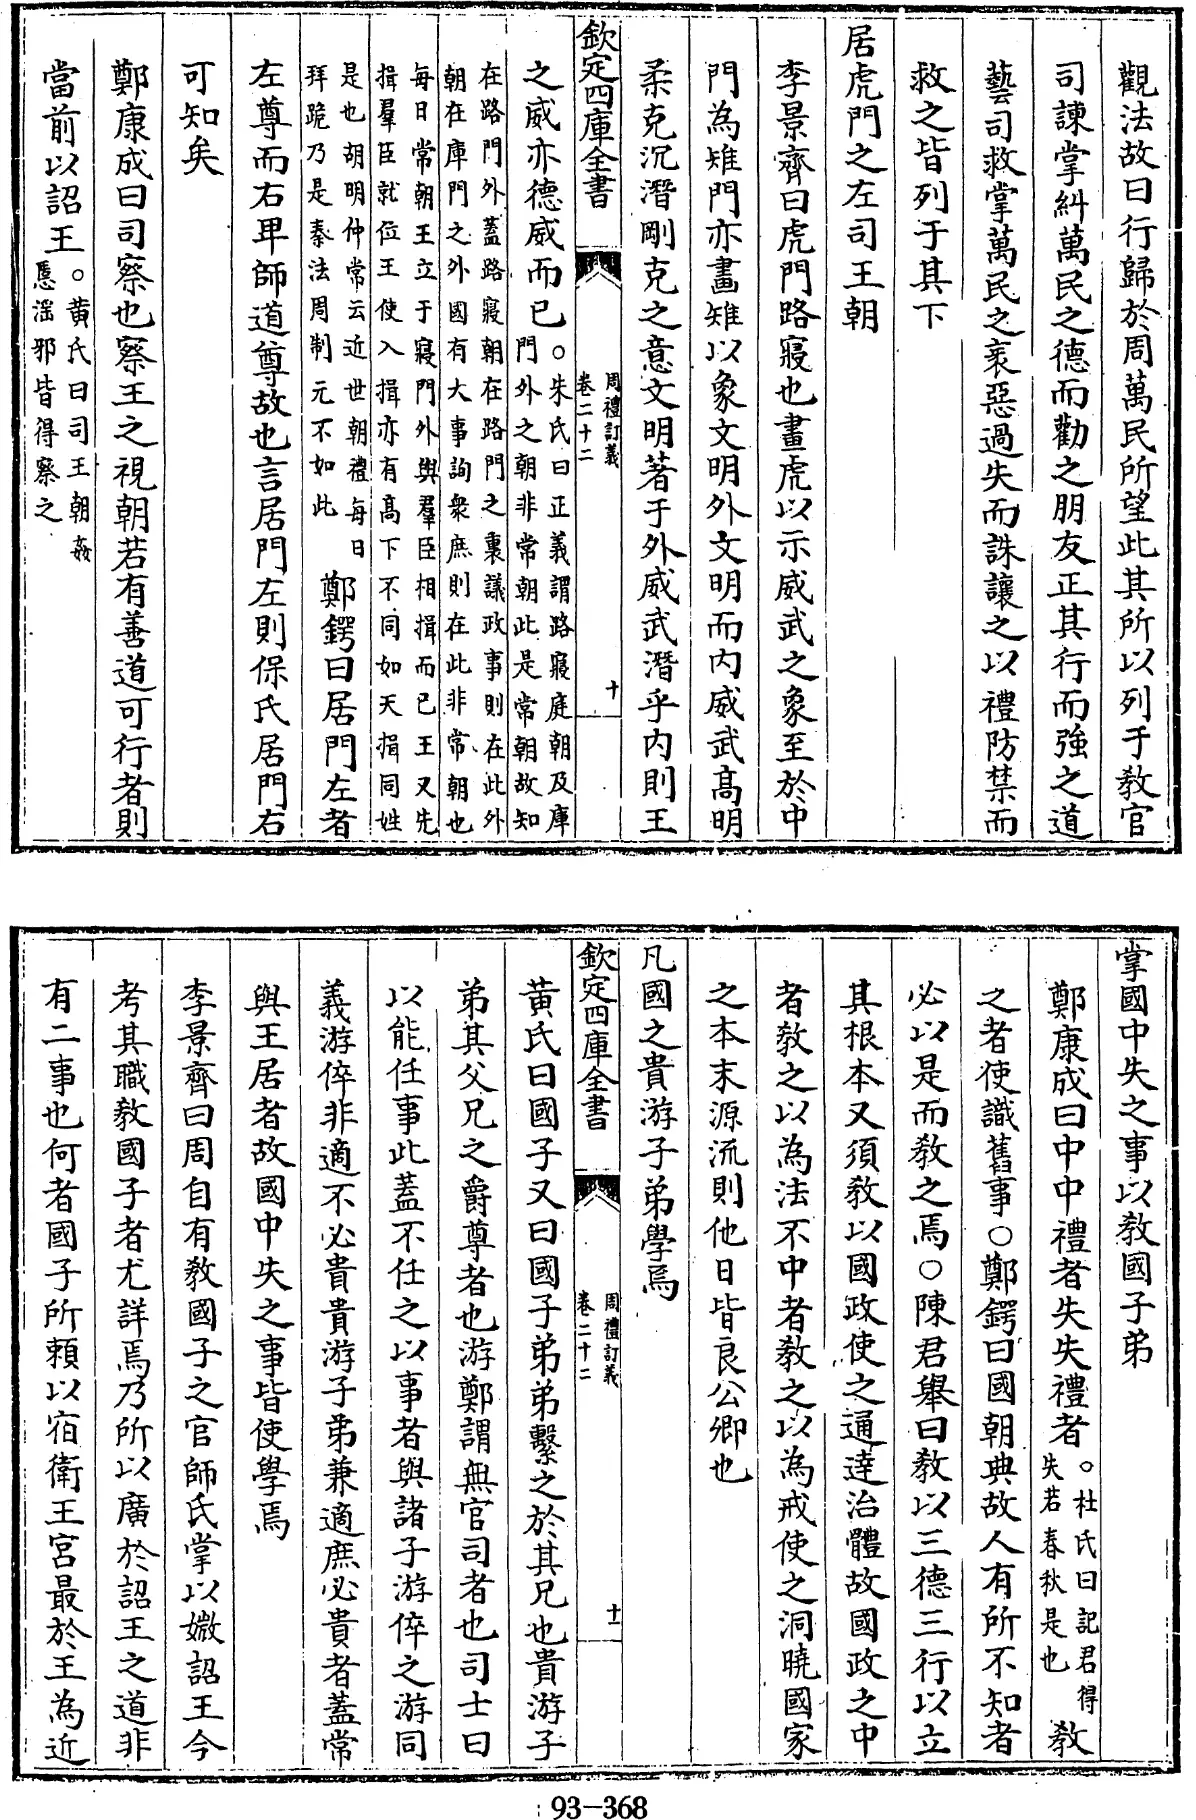 觀法故曰行歸於周萬民所望此其所以列于教官
司諫掌糾萬民之德而勸之朋友正其行而強之道
藝司救掌萬民之衺惡過失而誅讓之以禮防禁而
救之皆列于其下
居虎門之左司王朝
李景齊曰虎門路寢也畫虎以示威武之象至於中
門為雉門亦畫雉以象文明外文明而内威武髙明
柔克沉潛剛克之意文明著于外威武潛乎内則王
欽定四庫全書
周禮訂義
卷二十二
十
之威亦德威而已○朱氏曰正義謂路寢庭朝及庫
門外之朝非常朝此是常朝故知
在路門外蓋路寢朝在路門之裏議政事則在此外
朝在庫門之外國有大事詢衆庶則在此非常朝也
每日常朝王立于寢門外與羣臣相揖而已王又先
揖羣臣就位王使入揖亦有髙下不同如天揖同姓
是也胡明仲常云近世朝禮每日
拜跪乃是秦法周制元不如此
鄭鍔曰居門左者
左尊而右卑師道尊故也言居門左則保氏居門右
可知矣
鄭康成曰司察也察王之視朝若有善道可行者則
當前以詔王○黄氏曰司王朝姦
慝滛邪皆得察之
掌國中失之事以教國子弟
鄭康成曰中中禮者失失禮者○杜氏曰記君得
失若春秋是也
教
之者使識舊事○鄭鍔曰國朝典故人有所不知者
必以是而教之焉○陳君舉曰教以三德三行以立
其根本又須教以國政使之通逹治體故國政之中
者教之以為法不中者教之以為戒使之洞曉國家
之本末源流則他日皆良公卿也
凡國之貴游子弟學焉
欽定四庫全書
周禮訂義
卷二十二
十一
黄氏曰國子又曰國子弟弟繫之於其兄也貴游子
弟其父兄之爵尊者也游鄭謂無官司者也司士曰
以能任事此蓋不任之以事者與諸子游倅之游同
義游倅非適不必貴貴游子弟兼適庶必貴者蓋常
與王居者故國中失之事皆使學焉
李景齊曰周自有教國子之官師氏掌以媺詔王今
考其職教國子者尤詳焉乃所以廣於詔王之道非
有二事也何者國子所頼以宿衛王宫最於王為近
93-368